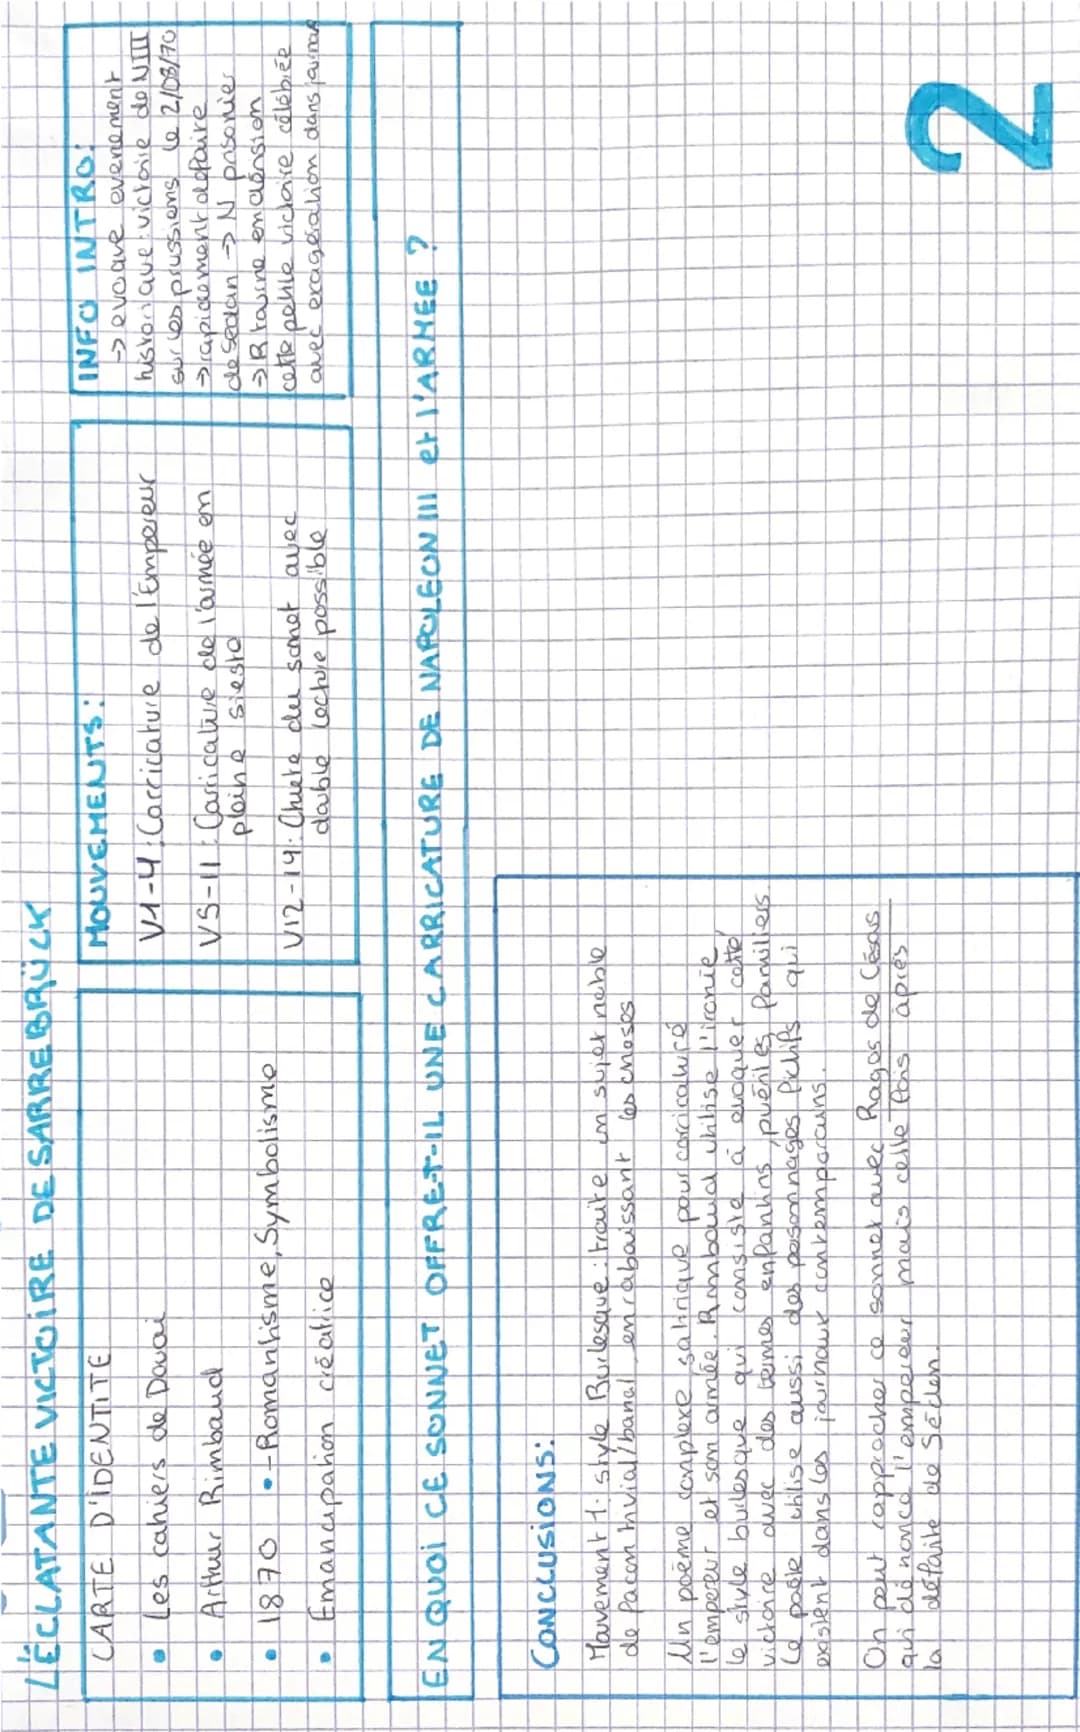 L'ÉCLATANTE VICTOIRE DE SARREBRÜCK
CARTE D'IDENTITE
• Les cahiers de Douai
• Arthur Rimbaud
• 1870 •-Romantisme, Symbolisme
• Emancipation créatrice
MOUVEMENTS:
V1-4: Carricature de l'Empereur
V5-11: Carricature de l'armée en
pleine sieste
V12-14: Chute du sonet avec
double lecture possible
INFO INTRO:
→ evoque evenement
historique: victoire de NIII
sur les prussiens le 2/08/70
→ rapidement defaire
de Sedan → N prisonier
→ R tourne en dérision
cette petite victoire célébrée
avec exagération dans journaux
EN QUOI CE SONNET OFFRE-T-IL UNE CARRICATURE DE NAPOLEON III et l'ARMEE ?
CONCLUSIONS:
Mouvement 1: style Burlesque: traite un sujet noble
de façon trivial/banal, en rabaissant les choses
Un poème complexe, satirique pour carricaturé
l'empereur et son armée. Rimbaud utilise l'ironie,
le style burlesque qui consiste à evoquer cette
victoire avec des termes enfantins, puérile, familiers.
Le poète utilise aussi des personnages fictifs qui
existent dans les journaux contemporains.
On peut rapprocher ce sonnet avec Rages de Césars
qui dénonce l'empereur mais cette fois après
la défaite de Séden.
2